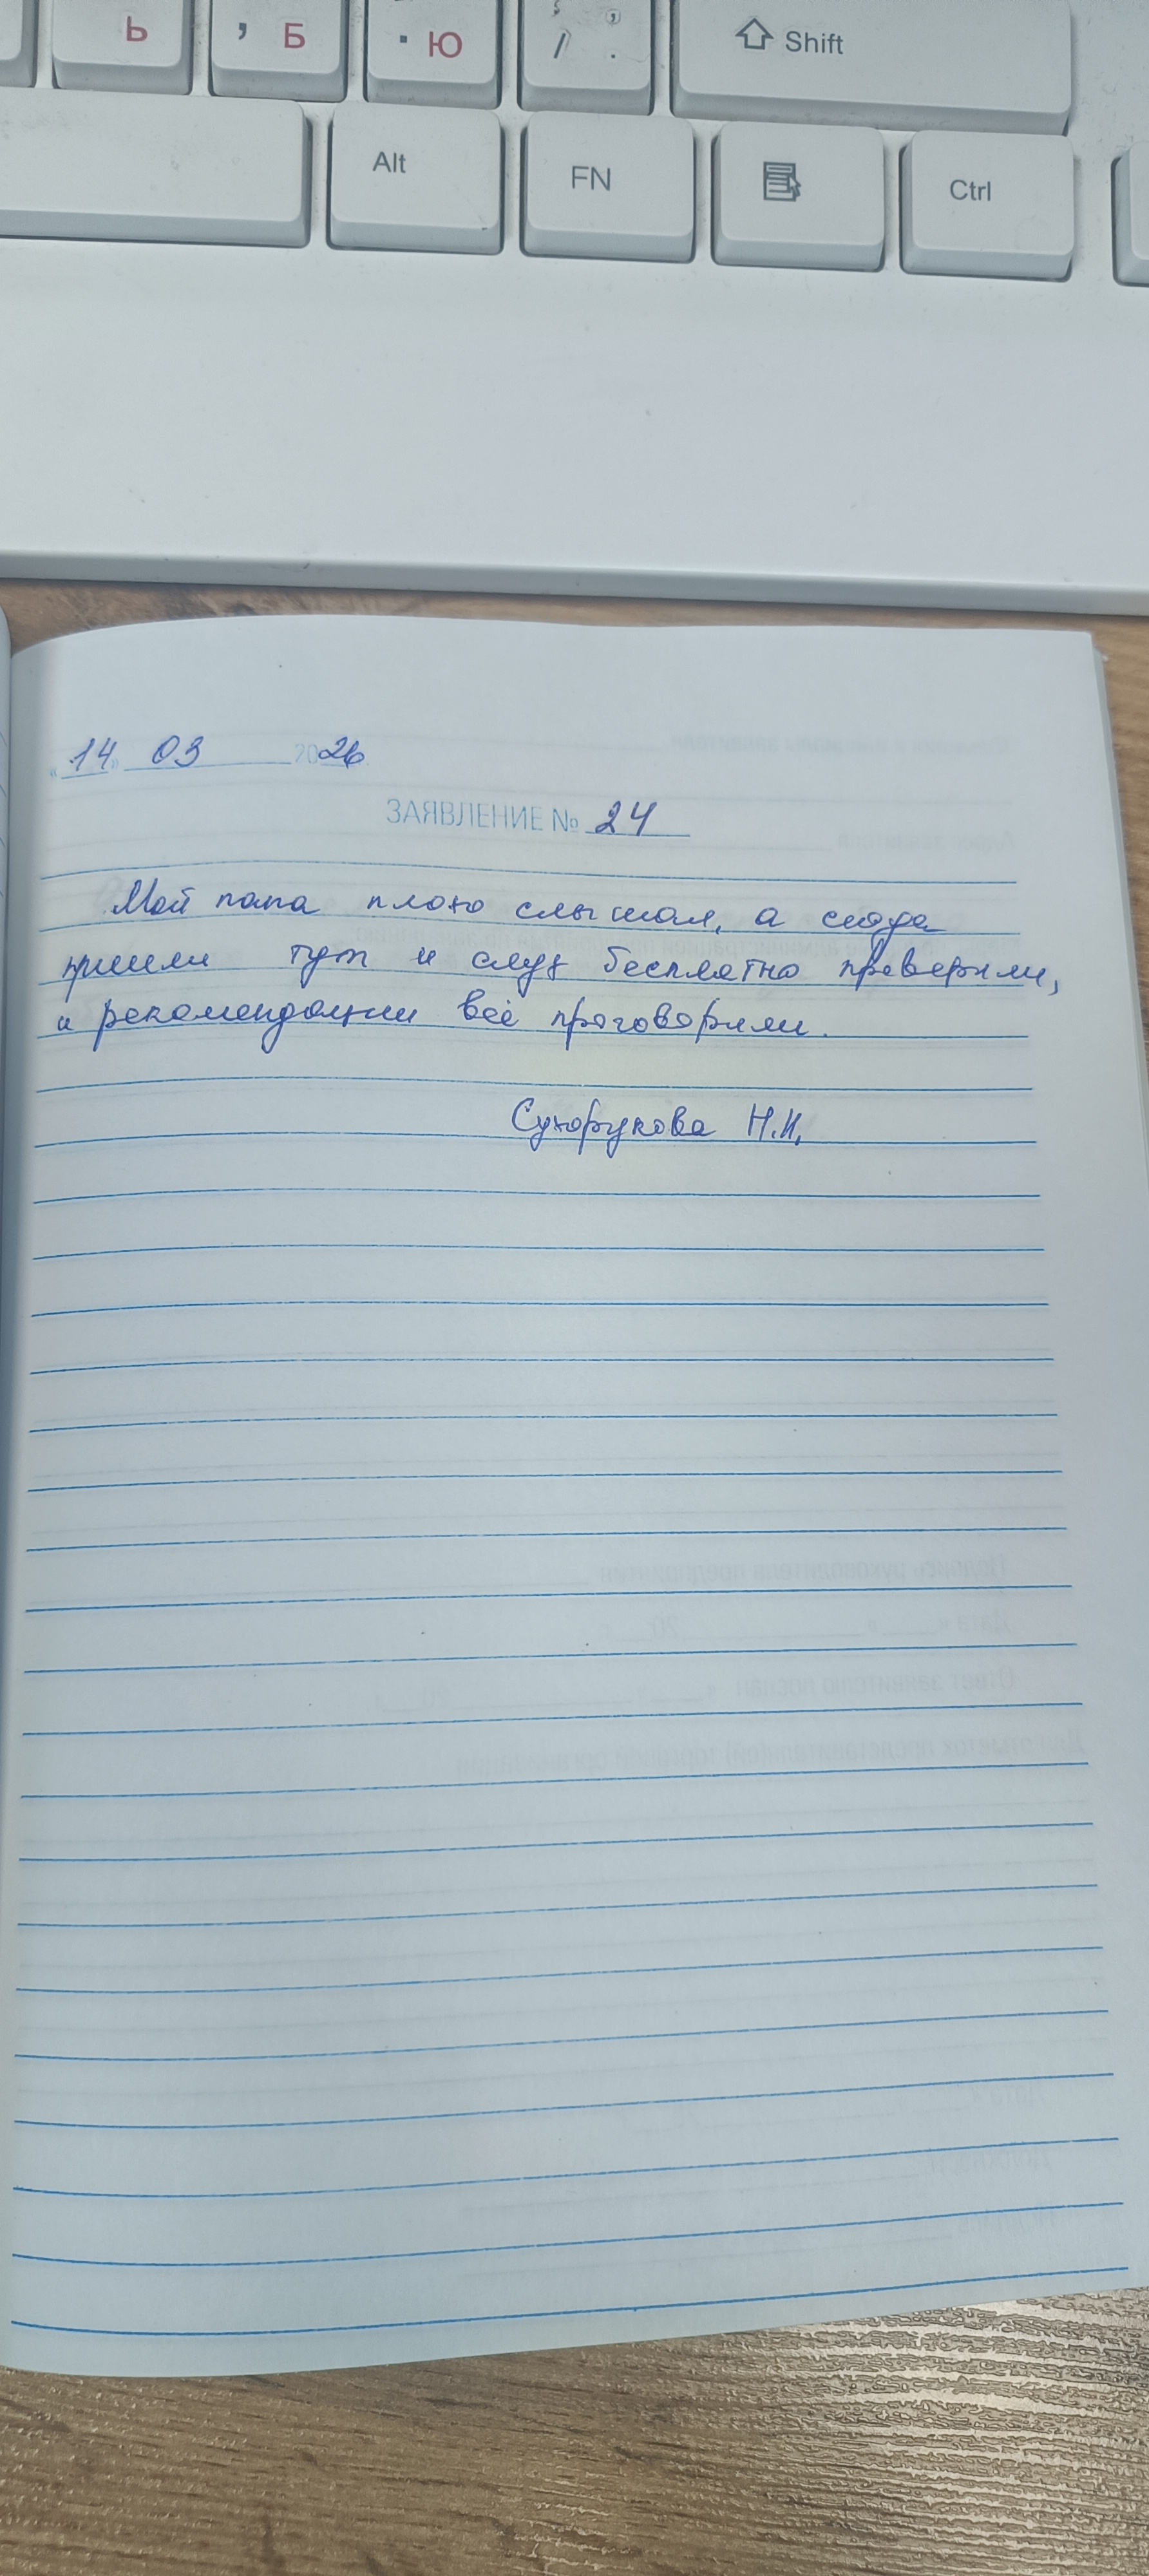 Ь , Б . Ю / . Shift
Alt FN Ctrl
«14» 03 2026
ЗАЯВЛЕНИЕ № 24
Мой папа плохо слышал, а сюда
пришли тут и слух бесплатно проверили,
и рекомендации все проговорили.
Сухорукова Н.И.